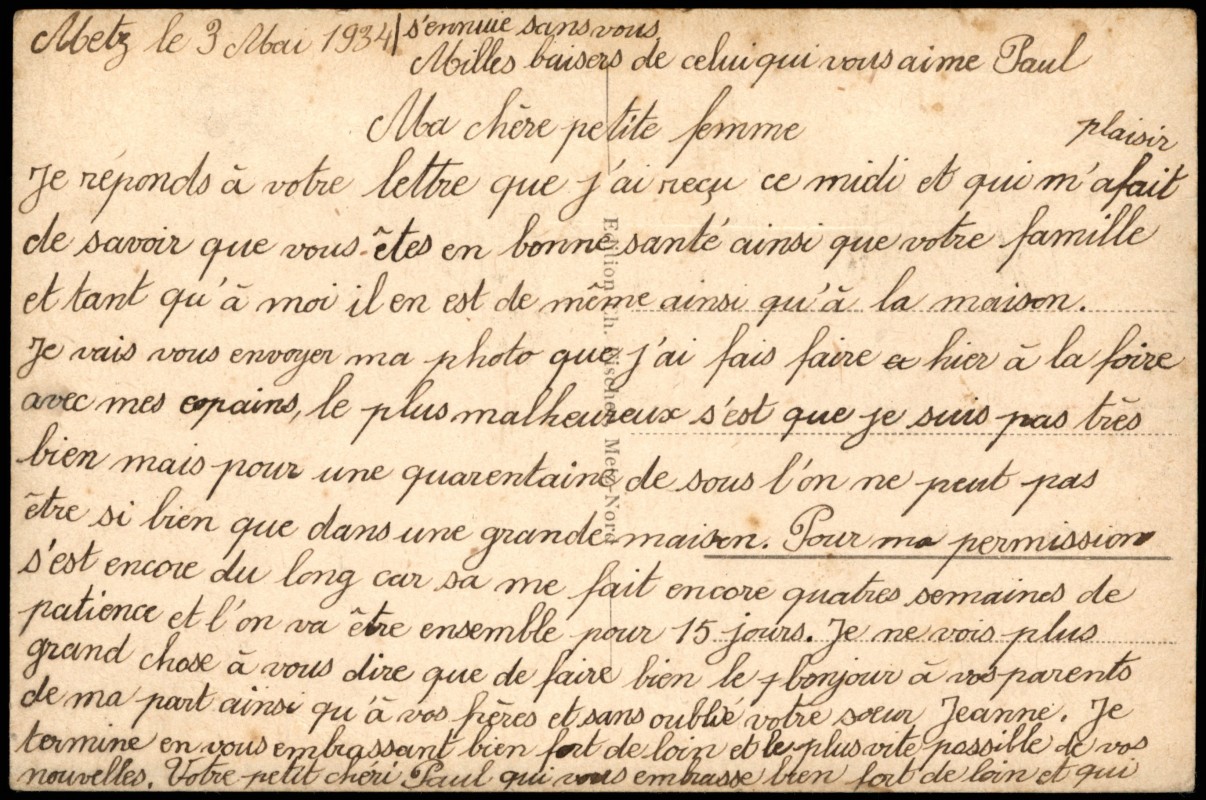 Metz le 3 Mai 1934
Ma chère petite femme
plaisir
Je réponds à votre lettre que j'ai reçu ce midi et qui m'a fait
de savoir que vous êtes en bonne santé ainsi que votre famille
et tant qu'à moi il en est de même ainsi qu'à la maison.
Je vais vous envoyer ma photo que j'ai fais faire hier à la foire
avec mes copains, le plus malheureux s'est que je suis pas très
bien mais pour une quarentaine de sous l'on ne peut pas
être si bien que dans une grande maison. Pour ma permission
s'est encore du long car sa me fait encore quatres semaines de
patience et l'on va être ensemble pour 15 jours. Je ne vois plus
grand chose à vous dire que de faire bien le bonjour à vos parents
de ma part ainsi qu'à vos frères et sans oublié votre sœur Jeanne. Je
termine en vous embrassant bien fort de loin et le plus vite possible de vos
nouvelles. Votre petit chéri Paul qui vous embrasse bien fort de loin et qui
s'ennuie sans vous
Milles baisers de celui qui vous aime Paul
Edition Ch. Metz-Nord